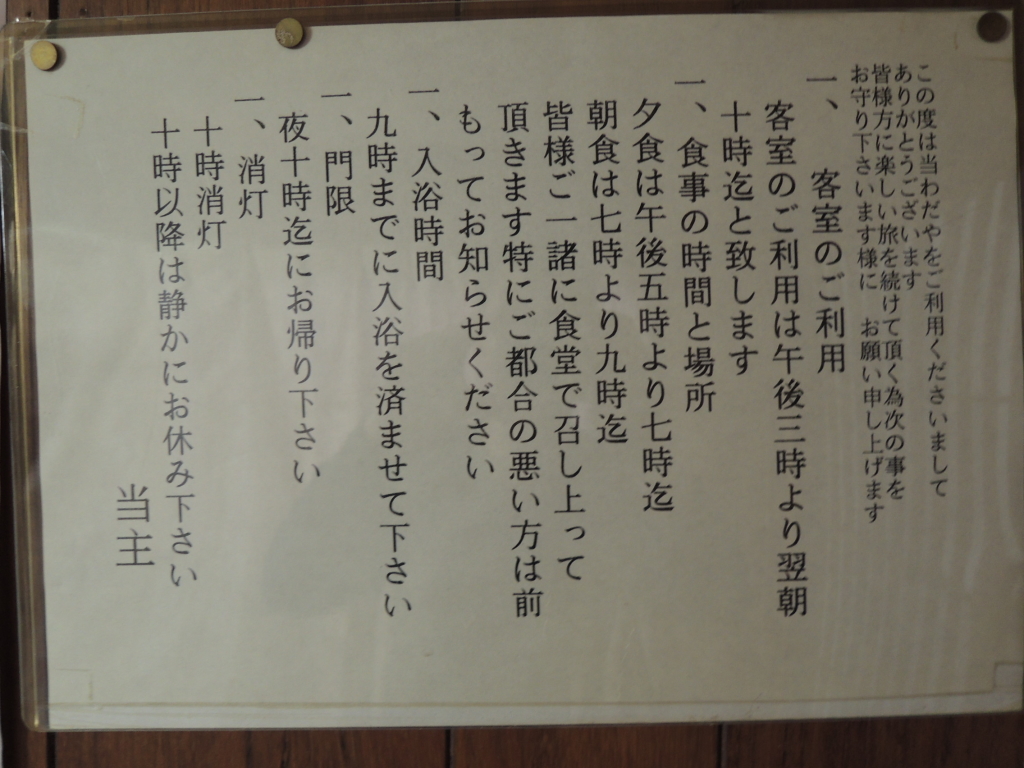 この度は当わだやをご利用くださいまして
ありがとうございます
皆様方に楽しい旅を続けて頂く為次の事を
お守り下さいます様に　お願い申し上げます
一、　客室のご利用
客室のご利用は午後三時より翌朝
十時迄と致します
一、食事の時間と場所
夕食は午後五時より七時迄
朝食は七時より九時迄
皆様ご一諸に食堂で召し上って
頂きます特にご都合の悪い方は前
もってお知らせください
一、入浴時間
九時までに入浴を済ませて下さい
一、門限
夜十時迄にお帰り下さい
一、消灯
十時消灯
十時以降は静かにお休み下さい
当主